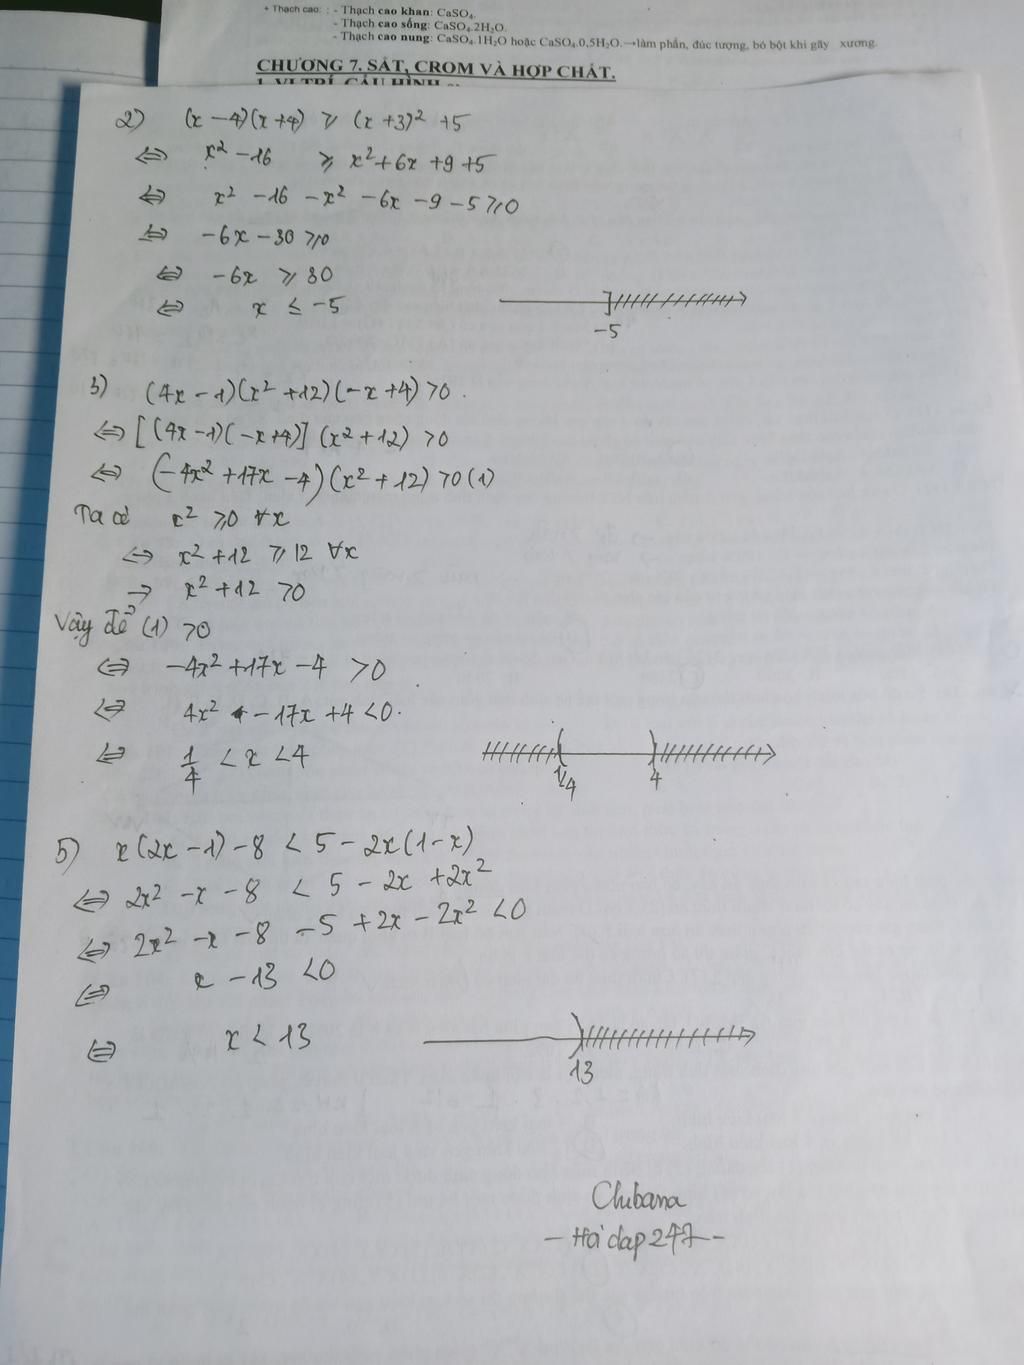 + Thạch cao: : - Thạch cao khan: CaSO₄.
- Thạch cao sống: CaSO₄.2H₂O.
- Thạch cao nung: CaSO₄.1H₂O hoặc CaSO₄.0,5H₂O.→làm phấn, đúc tượng, bó bột khi gãy xương.
CHƯƠNG 7. SẮT, CROM VÀ HỢP CHẤT.
2) (x - 4)(x + 4) ≥ (x + 3)² + 5
⇔ x² - 16 ≥ x² + 6x + 9 + 5
⇔ x² - 16 - x² - 6x - 9 - 5 ≥ 0
⇔ -6x - 30 ≥ 0
⇔ -6x ≥ 30
⇔ x ≤ -5
-5
3) (4x - 1)(x² + 12)(-x + 4) > 0.
⇔ [(4x - 1)(-x + 4)] (x² + 12) > 0
⇔ (-4x² + 17x - 4)(x² + 12) > 0 (1)
Ta có x² ≥ 0 ∀x
⇔ x² + 12 ≥ 12 ∀x
→ x² + 12 > 0
Vậy để (1) > 0
⇔ -4x² + 17x - 4 > 0
⇔ 4x² - 17x + 4 < 0.
⇔ 1/4 < x < 4
1/4 4
5) x(2x - 1) - 8 < 5 - 2x(1 - x)
⇔ 2x² - x - 8 < 5 - 2x + 2x²
⇔ 2x² - x - 8 - 5 + 2x - 2x² < 0
⇔ x - 13 < 0
⇔ x < 13
13
Chibana
- Hoidap247 -